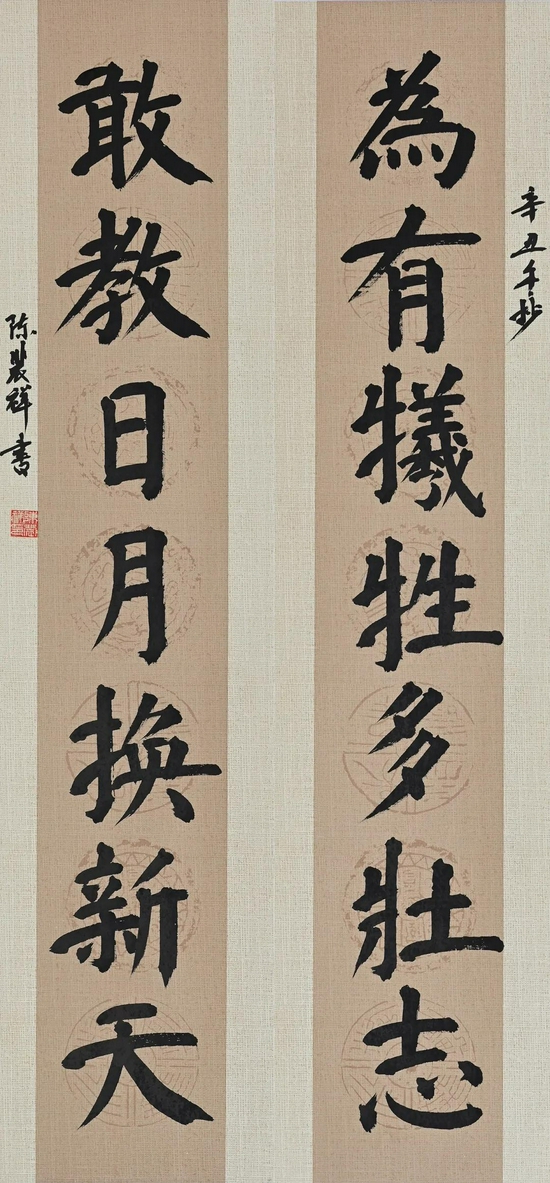 為有犧牲多壯志
辛丑年抄
敢教日月換新天
陈裴祥書